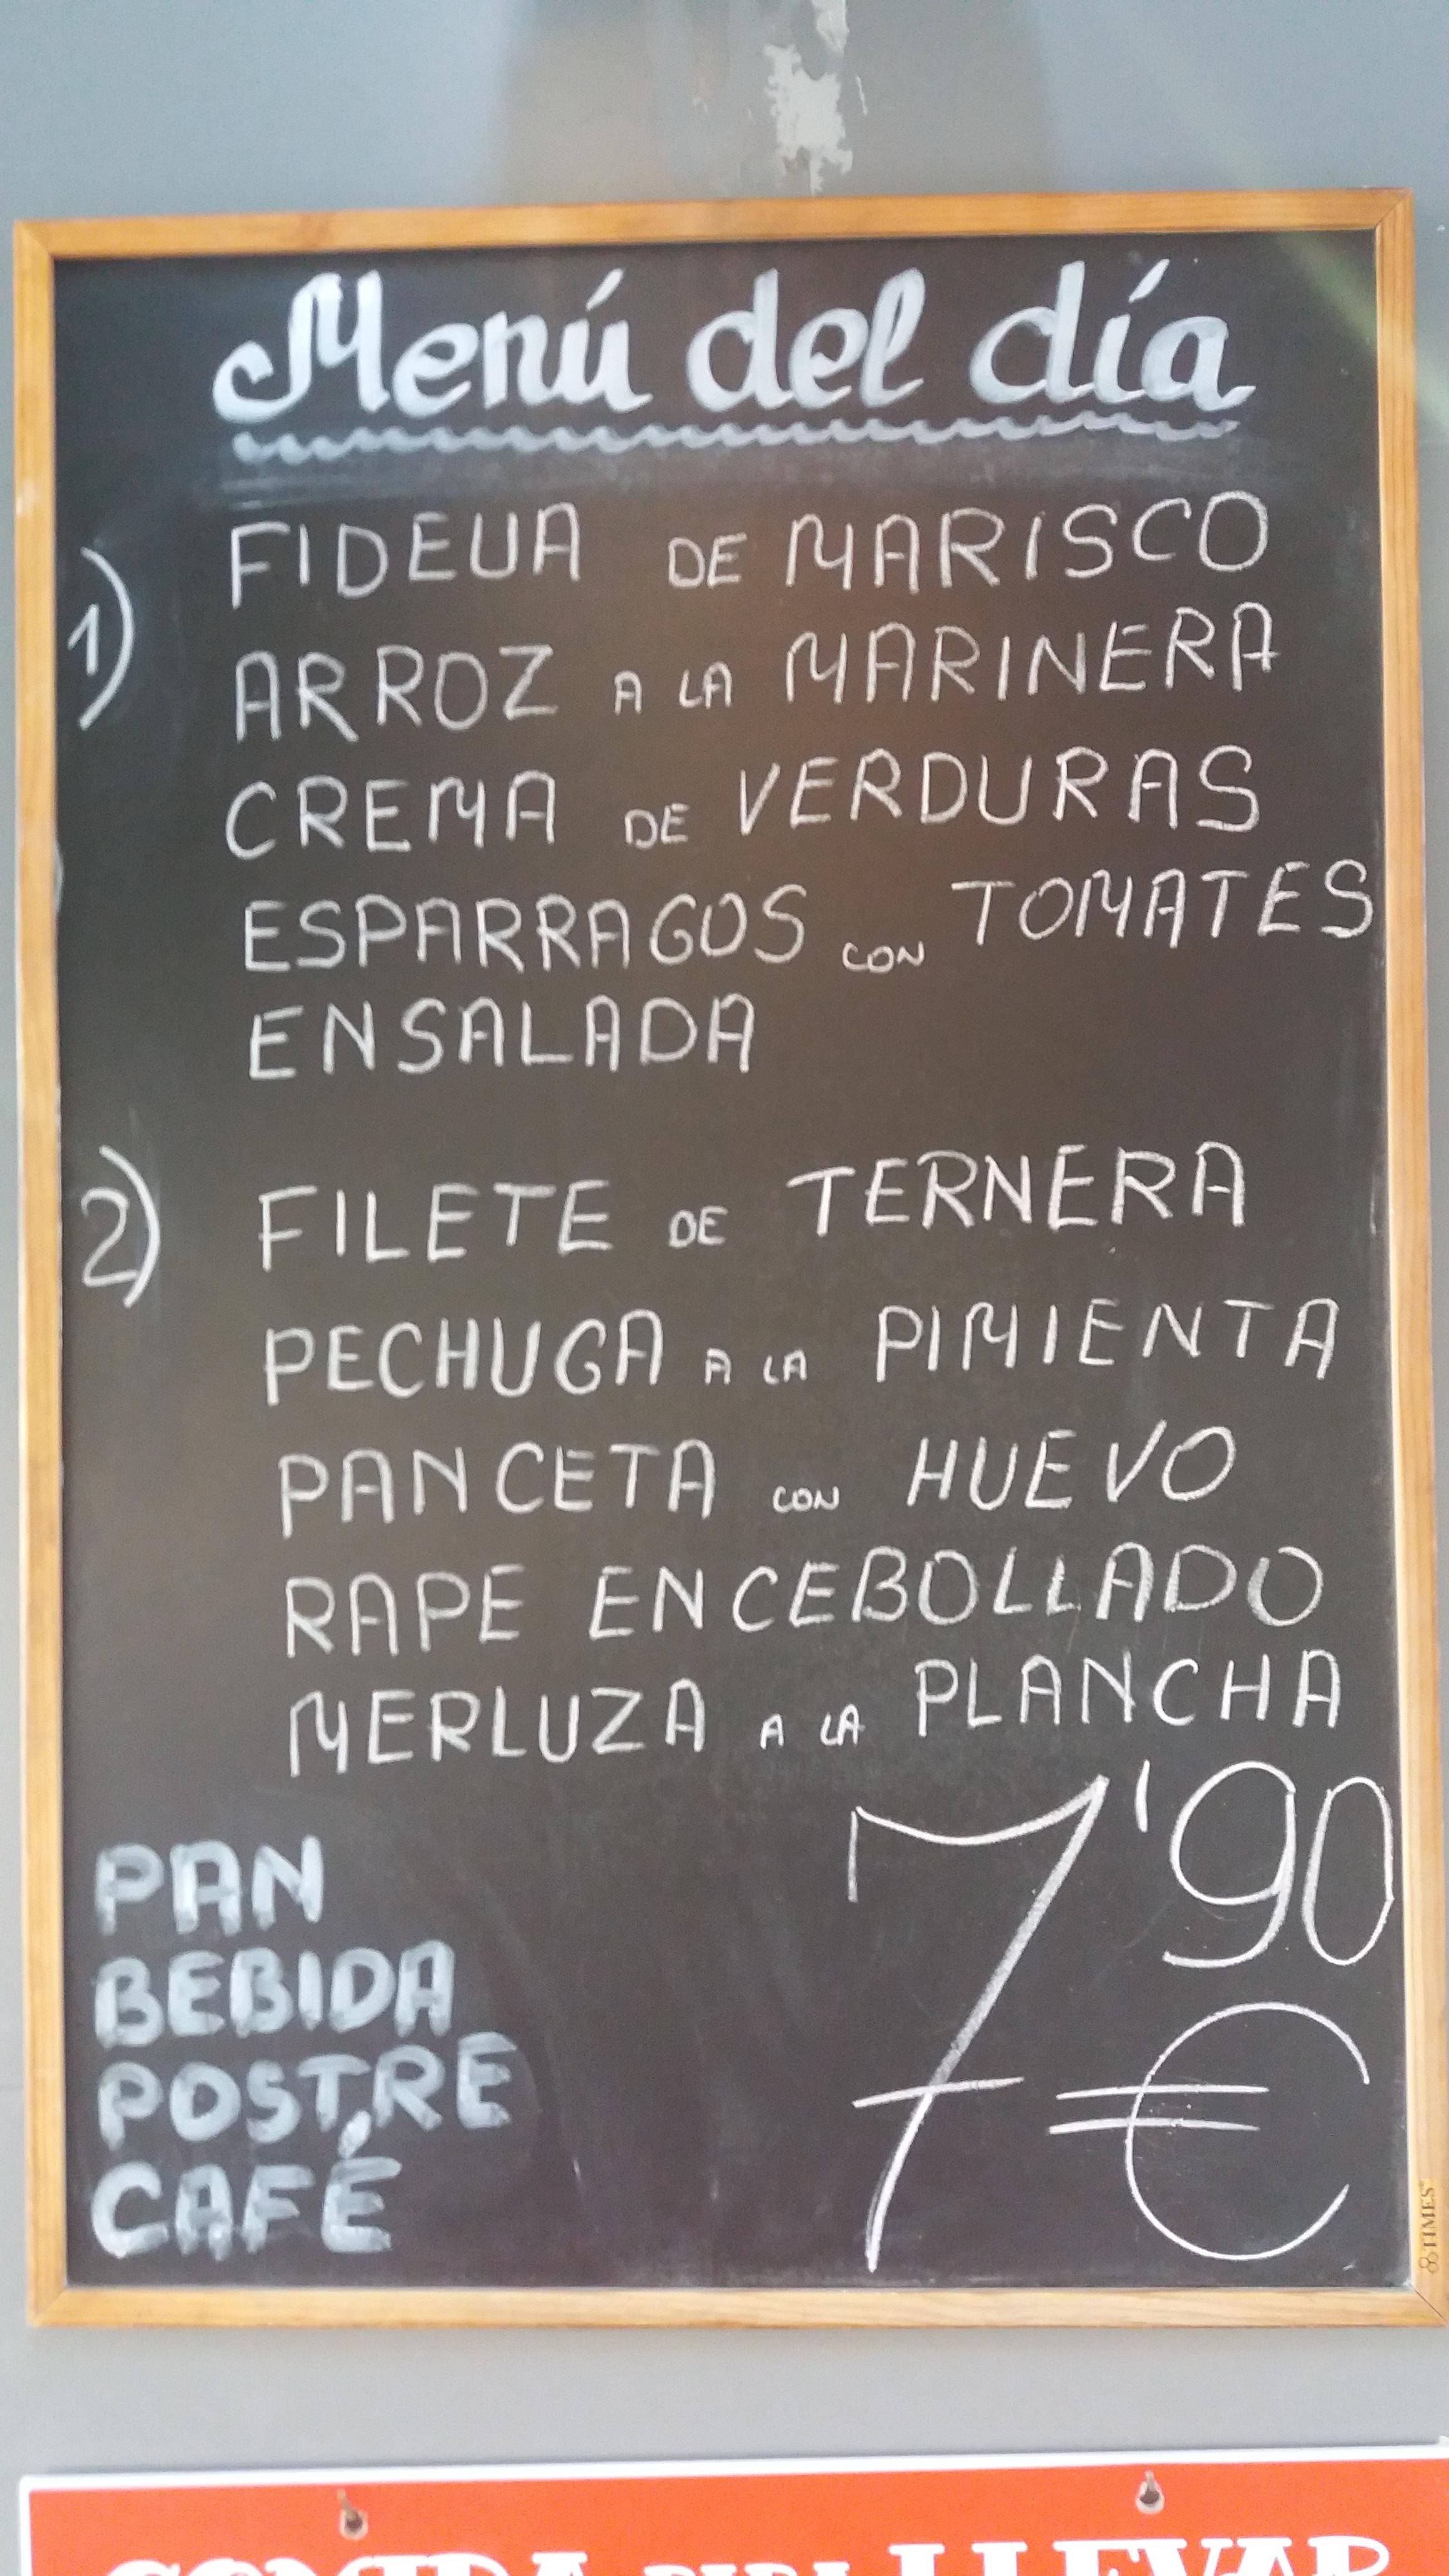 Menú del día
1)
FIDEUA DE MARISCO
ARROZ A LA MARINERA
CREMA DE VERDURAS
ESPARRAGOS CON TOMATES
ENSALADA
2)
FILETE DE TERNERA
PECHUGA A LA PIMIENTA
PANCETA CON HUEVO
RAPE ENCEBOLLADO
MERLUZA A LA PLANCHA
PAN
BEBIDA
POSTRE
CAFÉ
7'90
€
TIMES
COMIDA PARA LLEVAR